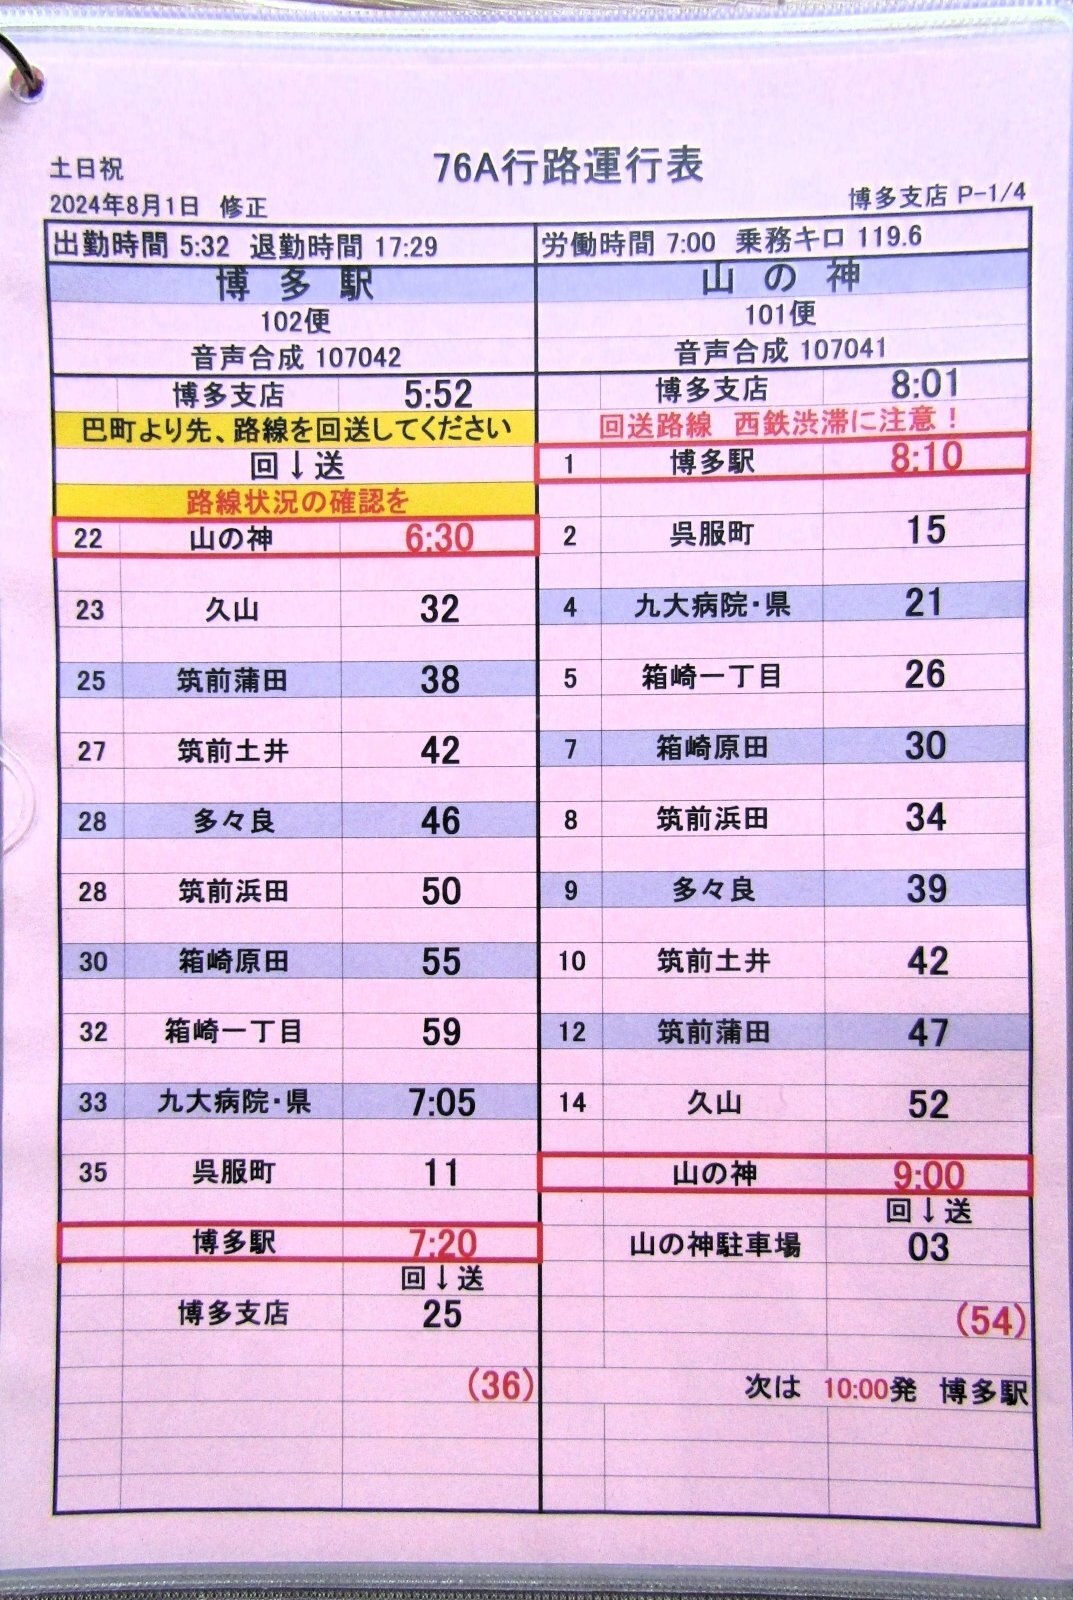 76A行路運行表
土日祝
2024年8月1日 修正
博多支店 P-1/4
出勤時間 5:32 退勤時間 17:29
労働時間 7:00 乗務キロ 119.6
博多駅
102便
音声合成 107042
博多支店 5:52
巴町より先、路線を回送してください
回↓送
路線状況の確認を
22 山の神 6:30
23 久山 32
25 筑前蒲田 38
27 筑前土井 42
28 多々良 46
28 筑前浜田 50
30 箱崎原田 55
32 箱崎一丁目 59
33 九大病院・県 7:05
35 呉服町 11
博多駅 7:20
回↓送
博多支店 25
(36)
山の神
101便
音声合成 107041
博多支店 8:01
回送路線 西鉄渋滞に注意！
1 博多駅 8:10
2 呉服町 15
4 九大病院・県 21
5 箱崎一丁目 26
7 箱崎原田 30
8 筑前浜田 34
9 多々良 39
10 筑前土井 42
12 筑前蒲田 47
14 久山 52
山の神 9:00
回↓送
山の神駐車場 03
(54)
次は 10:00発 博多駅